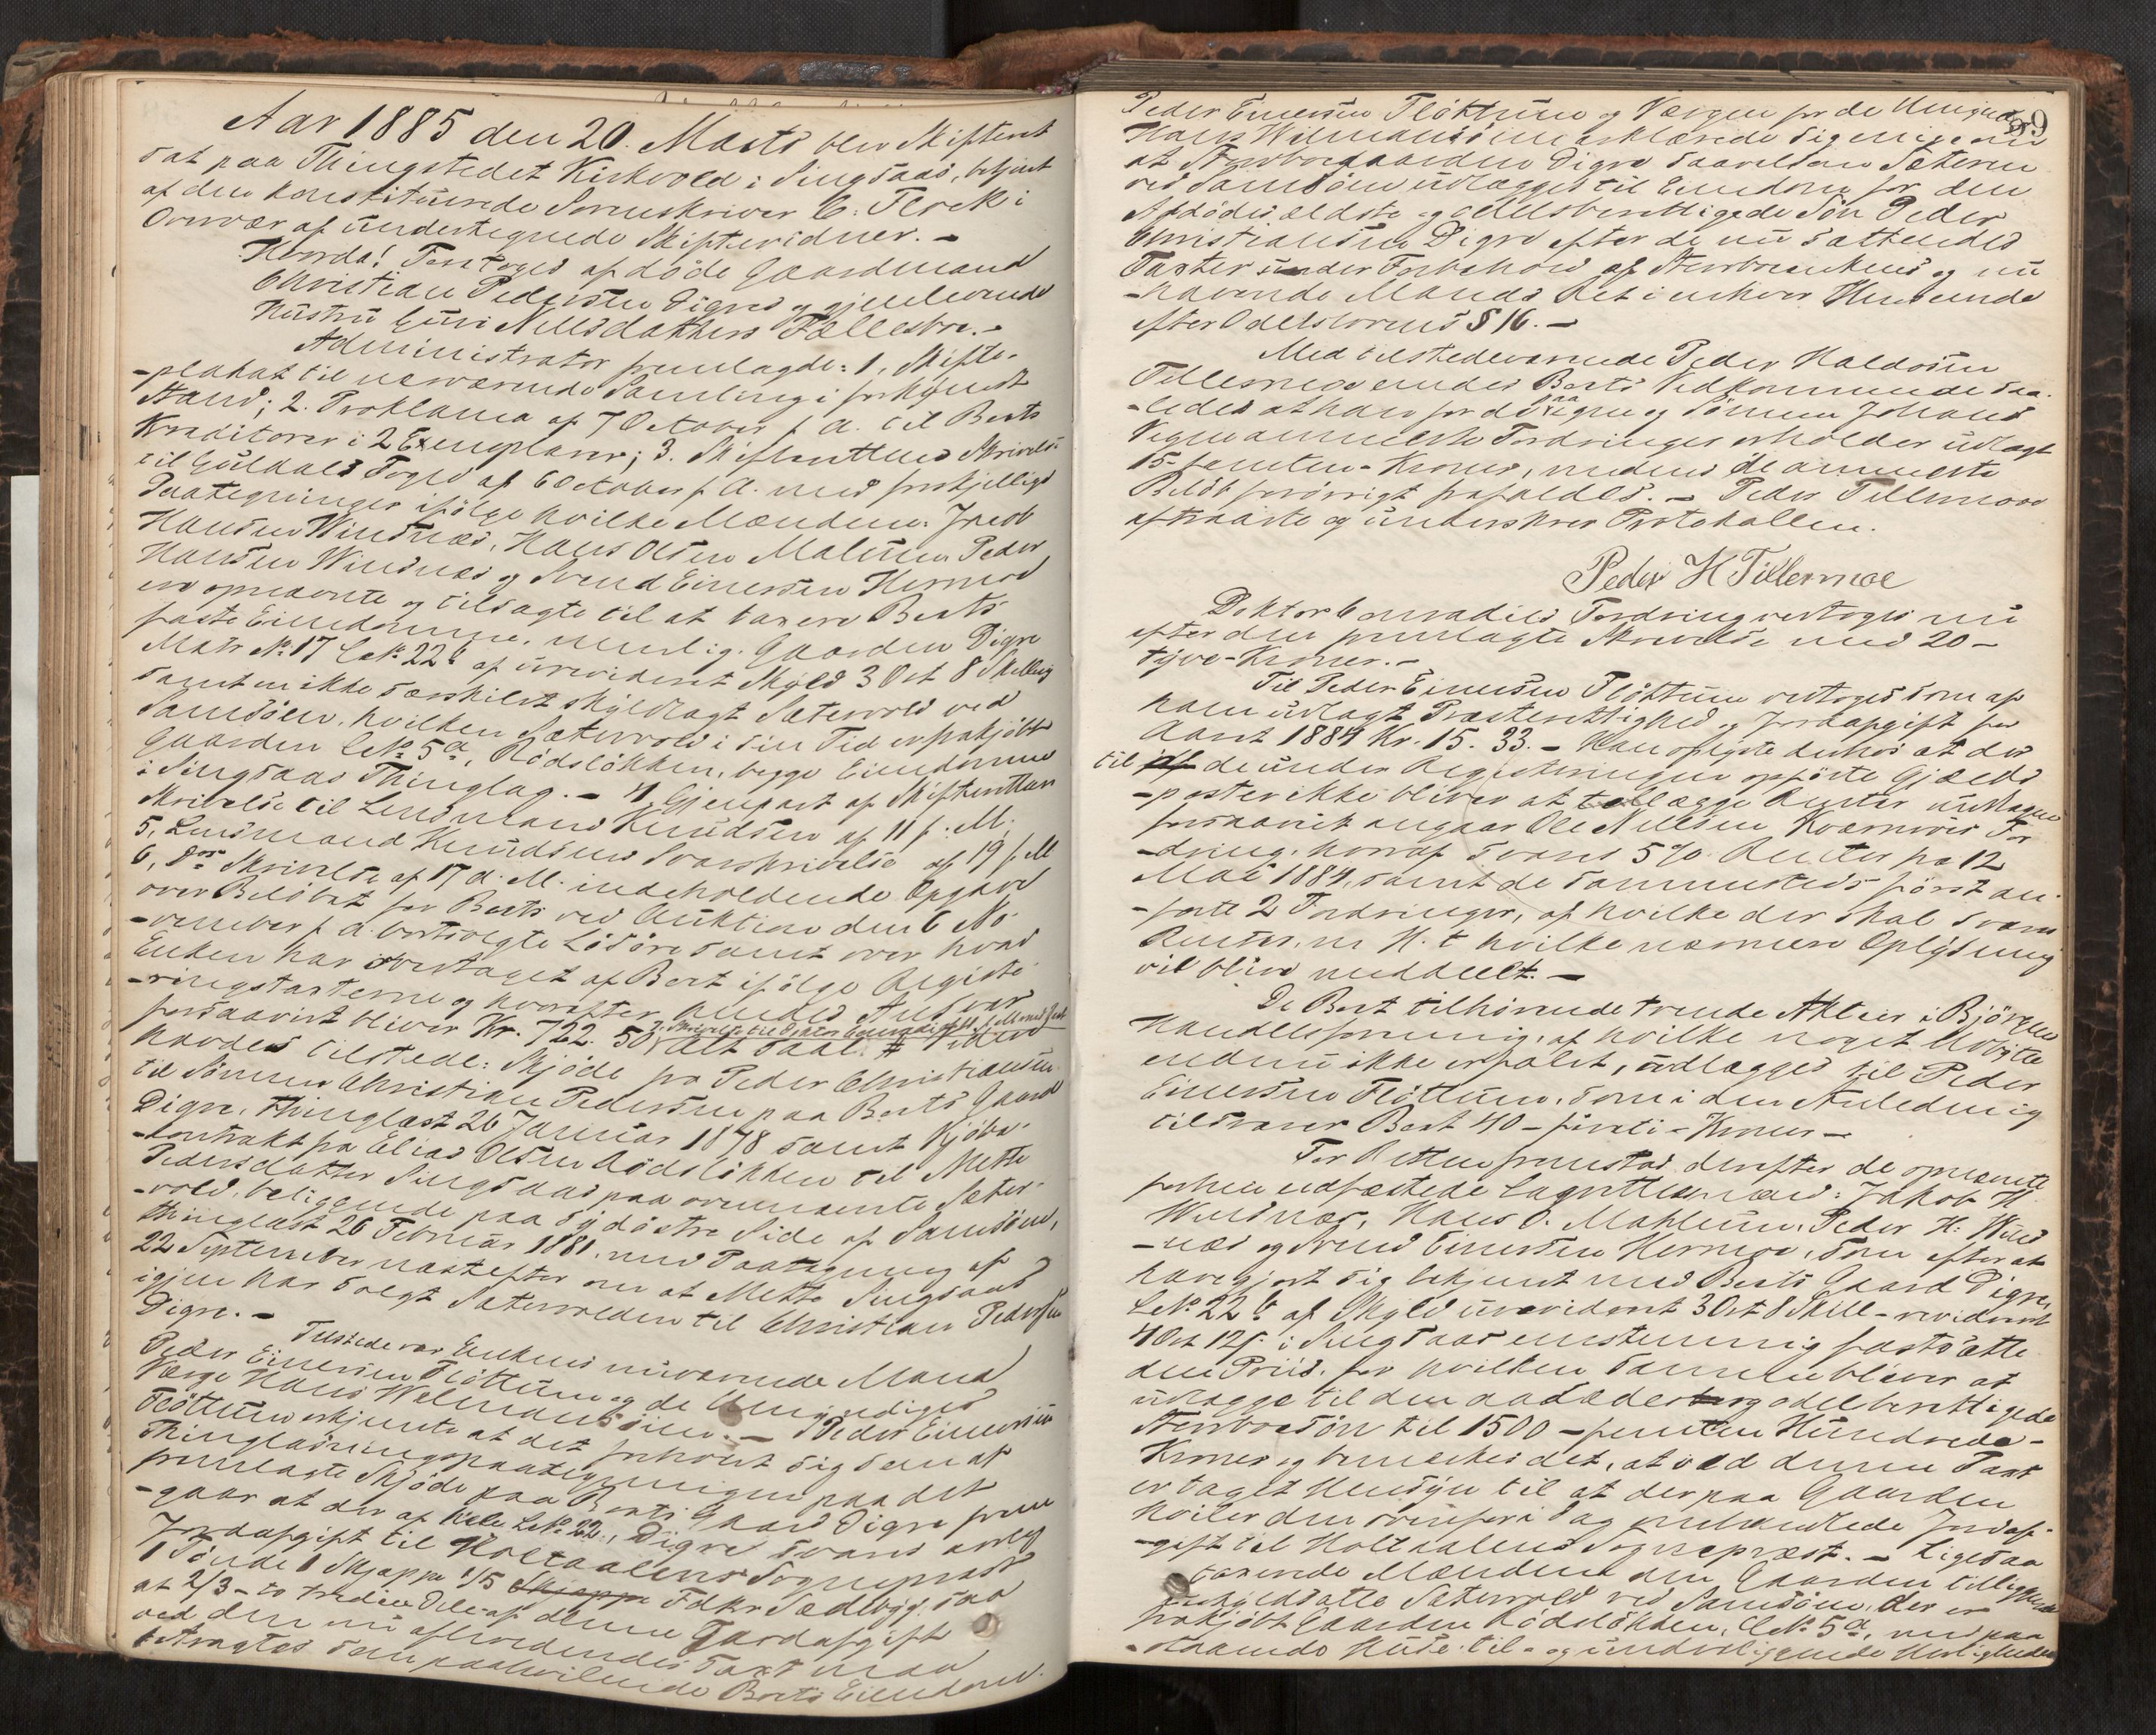 Aar 1885 den 20. Marts blev Skifteret
sat paa Thingstedet Kirkvold i Singsaas, betjent
af den konstituerede Sorenskriver C. Flock i
Overvær af undertegnede Skiftevidner. -
Hvorda! Foretoges afdøde Gaardmand
Christian Pedersen Digres og gjenlevende
Hustru Guri Nilsdatters Fællesbo. -
Administrator fremlagde: 1, Skifte-
-plakat til nærværende Samling i forkyndt
Stand; 2. Proklama af 7 October f. A. til Boets
Kreditorer i 2 Exemplarer; 3. Skifterettens Skrivelse
til Guldals Foged af 6 October f. A. med forskjellige
Paategninger ifølge hvilke Mændene: Jacob
Hansen Winsnes, Hans Olsen Malum, Peder
Hansen Winsnes og Svend Einersen Hermoe
ere opnævnte og tilsagte til at taxere Boets
faste Eiendomme, nemlig: Gaarden Digre
Matr No 17 LNo 22 b af urevideret Skyld 3 Ort 8 Skilling
samt en ikke særskilt skyldlagt Sætervold ved
Samsøen, hvilken Sætervold i sin Tid er frakjøbt
Gaarden LNo 5 a, Rødsløkken, begge Eiendomme
i Singsaas Thinglag. - 4, Gjenpart af Skifterettens
Skrivelse til Lensmand Knudsen af 11 f. M.
5, Lensmand Knudsens Svarskrivelse af 19 f. M
6, Ds Skrivelse af 17 d. M. indeholdende Opgave
over Beløbet for Boets ved Auktion den 6 No-
-vember f. A. bortsolgte Løsøre samt over hvad
Enken har overtaget af Boet ifølge Registe-
-ringstaxterne og hvorefter hendes Ansvar
forsaavidt bliver Kr. 722. 50. Alt saal. Videre
havdes tilstede: Skjøde fra Peder Christiansen
til Sønnen Christian Pedersen paa Boets Gaard
Digre, thinglæst 26 Januar 1878 samt Kjøbe-
-kontrakt fra Elias Olsen Rødsløkken til Mette
Pedersdatter Singsaas paa ovennævnte Sæter-
-vold, beliggende paa sydøstre Side af Samsøen,
thinglæst 26 Februar 1881, med Paategning af
22 September næstefter om at Mette Singsaas
igjen har solgt Sætervolden til Christian Pedersen
Digre. -
Tilstede var Enkens nuværende Mand
Peder Einersen Fløttum og de Umyndiges
Værge Hans Wilmannsøien. - Peder Einersen
Fløttum erkjendte at det forholdt sig som af
Thinglæsningspaategningen paa det
fremlagte Skjøde paa Boets Gaard Digre frem
-gaar at der af hele LNo 22, Digre svares aarlig
Jordafgift til Holtaalens Sognepræst
1 Tønde 1 Skjæppe 1/5 Fdkr Sædbyg, saa
at 2/3 - to tredie Dele af denne Jordafgift
ved den nu afholdendes Taxt maa
betragtes som paahvilende Boets Eiendom.
59
Peder Einersen Fløttum og Værgen for de Umyndige
Hans Wilmannsøien erklærede sig enige om
at Stervboegaarden Digre saavelsom Sæteren
ved Samsøen udlægges til Eiendom for den
Afdødes ældste og odelsberettigede Søn Peder
Christiansen Digre efter de nu sættendes
Taxter under Forbehold af Stervboenkens og nu
-havende Mands Ret i enhver Henseende
efter Odelslovens § 16. -
Med tilstedeværende Peder Haldosen
Tillermoe endes Boets Vedkommende saa-
-ledes at han for de egne og Sønnen Johans
Vegne anmeldte Fordringer erholder udlagt
15 - femten - Kroner, medens de anmeldte
Beløb forøvrigt frafaldes. - Peder Tillermoe
aftraadte og underskrev Protokollen.
Peder H Tillermoe
Doktor Conradies Fordring vedtoges nu
efter den fremlagte Skrivelse med 20 -
tyve - Kroner. -
Til Peder Einersen Fløttum vedtoges som af
ham udlagt Præsterettighed og Jordafgift for
Aaret 1884 Kr. 15. 33. - Han oplyste derhos at der
til de under Registreringen opførte Gjælds
-poster ikke bliver at tillægge Renter undtagen
forsaavidt angaar Ole Nilsen Kværnøes For
-dring, hvoraf svares 5% Renter fra 12
Mai 1884, samt de sammesteds først an-
-førte 2 Fordringer, af hvilke der skal svares
Renter, m H. t hvilke nærmere Oplysning
vil blive meddelt. -
De Boet tilhørende trende Aktier i Bjørgens
Handelsforening, af hvilke noget Udbytte
endnu ikke er faldt, udlægges til Peder
Einersen Fløttum, som i den Anledning
tilsvarer Boet 40 - fireti - Kroner -
For Retten fremstod derefter de opnævnte
forhen edfæstede Lagrettesmænd: Jakob H.
Winsnes, Hans O. Mahlum, Peder H. Wins
-næs og Svend Einersen Hermoe, som efter at
have gjort sig bekjendt med Boets Gaard Digre,
LNo 22 b af Skyld urevideret 3 Ort 8 Skill - revideret
4 Ort 12 s i Singsaas enstemmig fastsatte
den Priis, for hvilken samme bliver at
udlægge til den aasædes og odelsberettigede
Stervboesøn til 1500 - femten Hundrede -
Kroner og bemærkes det, at ved denne Taxt
er taget Hensyn til at der paa Gaarden
hviler den ovenfor i Dag omhandlede Jordaf-
-gift til Holtaalens Sognepræst. - Ligesaa
taxerede Mændene den Gaarden tilliggende
uskyldsatte Sætervold ved Samsøen, der er
frakjøbt Gaarden Rødsløkken, LNo 5 a, med paa
-staaende Huse, til - og underliggende Herligheder